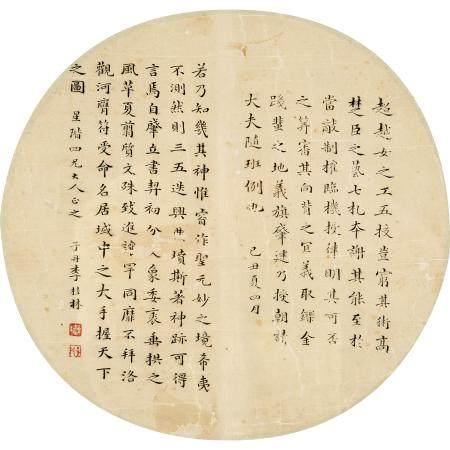 超越女之工五校豈窮其術高
楚臣之藝七札本謝其能至於
當敵制權臨機授律明其可否
之筭審其向背之宜義取鏗金
踐之地義旗肇建乃授朝請
大夫隨班例也 己丑夏四月
若乃知幾其神惟睿作聖元妙之境希夷
不測然則三五迭興典墳斯著神跡可得
言焉自肇立書契初分爻象委裘垂拱之
風革夏翦質文殊致進讓罕同靡不拜洛
觀河膺符受命名居域中之大手握天下
之圖 星階四兄大人正之 子丹李桂林